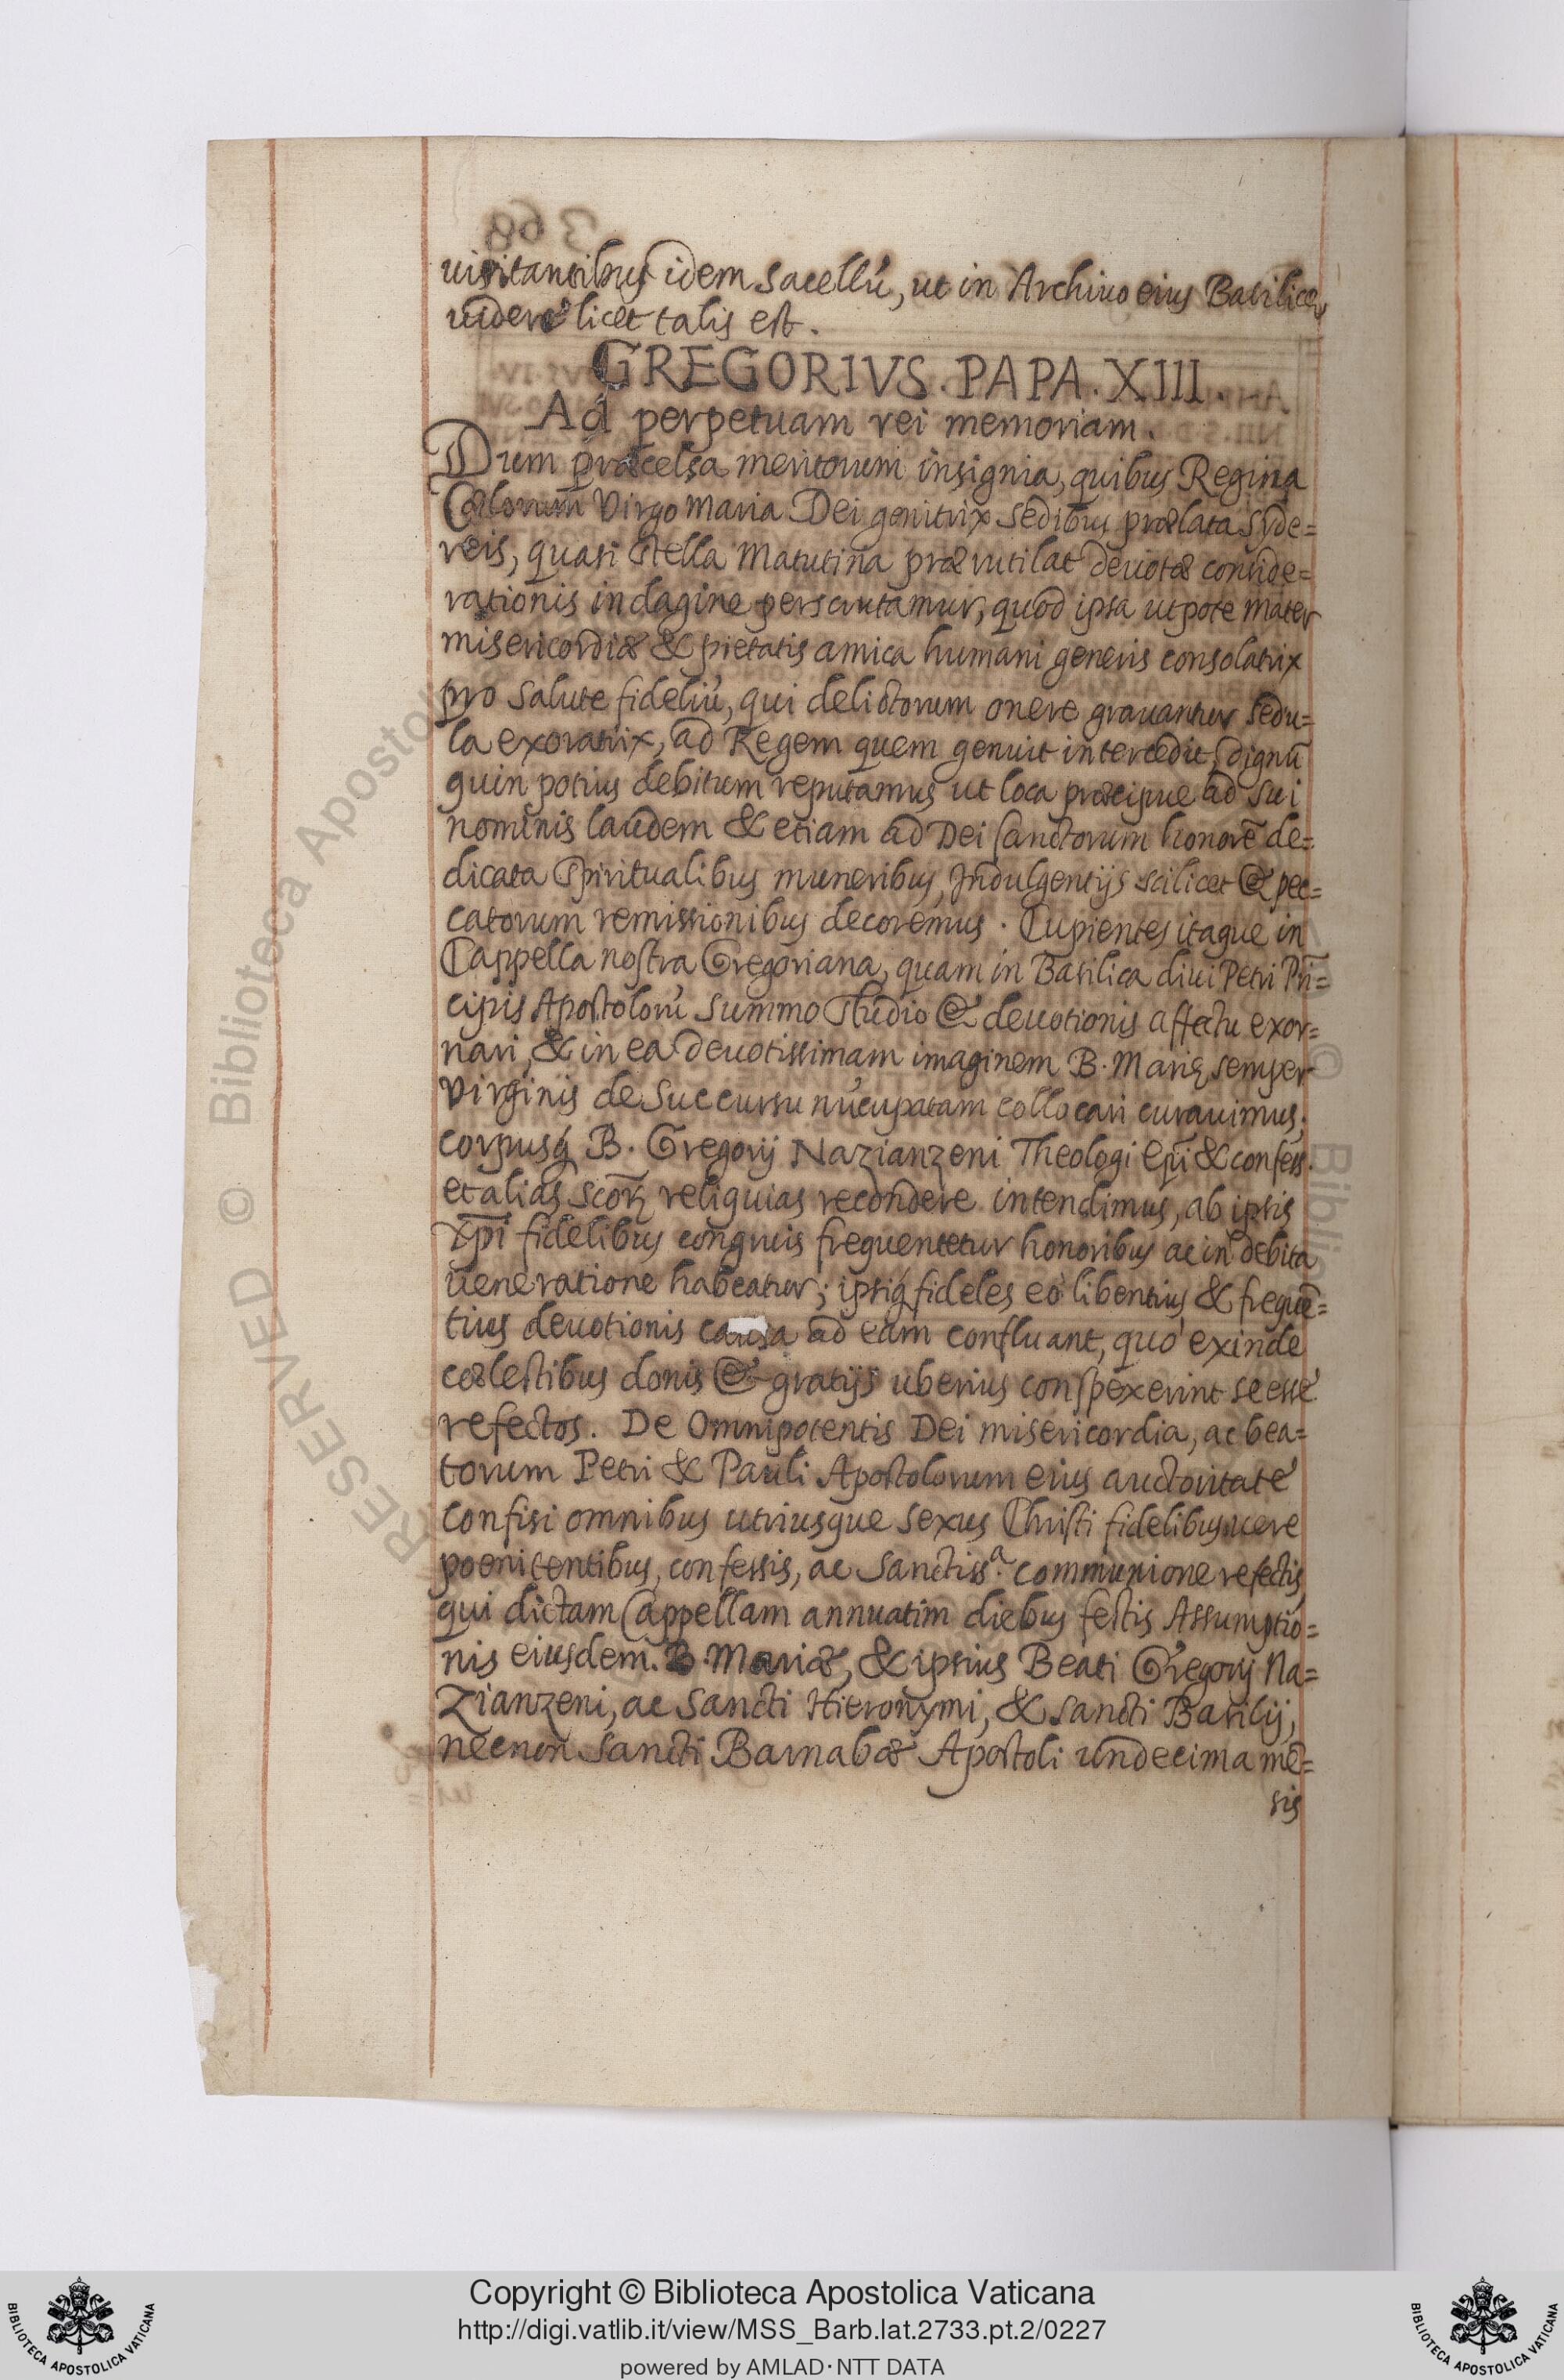 uisitantibus idem Sacellú, ut in Archiuo eius Basilicæ
uidere licet talis est.
GREGORIVS. PAPA. XIII.
Ad perpetuam rei memoriam.
Dum præcelsa meritorum insignia, quibus Regina
Cælorum Virgo Maria Dei genitrix sedibus prælata syde=
reis, quasi stella Matutina prærutilat deuotæ conside=
rationis indagine perscrutamur, quod ipsa utpote mater
misericordiæ & pietatis amica humani generis consolatrix
pro salute fideliú, qui delictorum onere grauantur sedu=
la exoratrix, ad Regem quem genuit intercedit, dignū
quin potius debitum reputamus ut loca præcipue ad sui
nominis laudem & etiam ad Dei sanctorum honorē de=
dicata spiritualibus muneribus, Indulgentijs scilicet & pec=
catorum remissionibus decoremus. Cupientes itaque in
Cappella nostra Gregoriana, quam in Basilica diui Petri Prī=
cipis Apostolorú summo studio & deuotionis affectu exor=
nari, & in ea deuotissimam imaginem B. Marię semper
Virginis de Succursu núcupatam collocari curauimus;
corpusq́ B. Gregorij Nazianzeni Theologi Epī & confess.
et alias scōꝝ reliquias recondere intendimus, ab ipsis
Xp̄i fidelibus congruis frequentetur honoribus ac in debita
ueneratione habeatur; ipsiq́ fideles eò libentius & frequē=
tius deuotionis causa ad eam confluant, quò exinde
cælestibus donis & gratijs uberius conspexerint se esse
refectos. De Omnipotentis Dei misericordia, ac bea=
torum Petri & Pauli Apostolorum eius auctoritate
confisi omnibus utriusque sexus Christi fidelibus uere
poenitentibus, confessis, ac Sanctiss.ª communione refectis
qui dictam Cappellam annuatim diebus festis Assumptio=
nis eiusdem. B. Mariæ, & ipsius Beati Gregorij Na=
zianzeni, ac Sancti Hieronymi, & Sancti Basilij,
necnon Sancti Barnabæ Apostoli undecima mē=
sis
RESERVED © Biblioteca Apostol
© Biblio
Copyright © Biblioteca Apostolica Vaticana
http://digi.vatlib.it/view/MSS_Barb.lat.2733.pt.2/0227
powered by AMLAD·NTT DATA
BIBLIOTECA APOSTOLICA VATICANA
BIBLIOTECA APOSTOLICA VATICANA